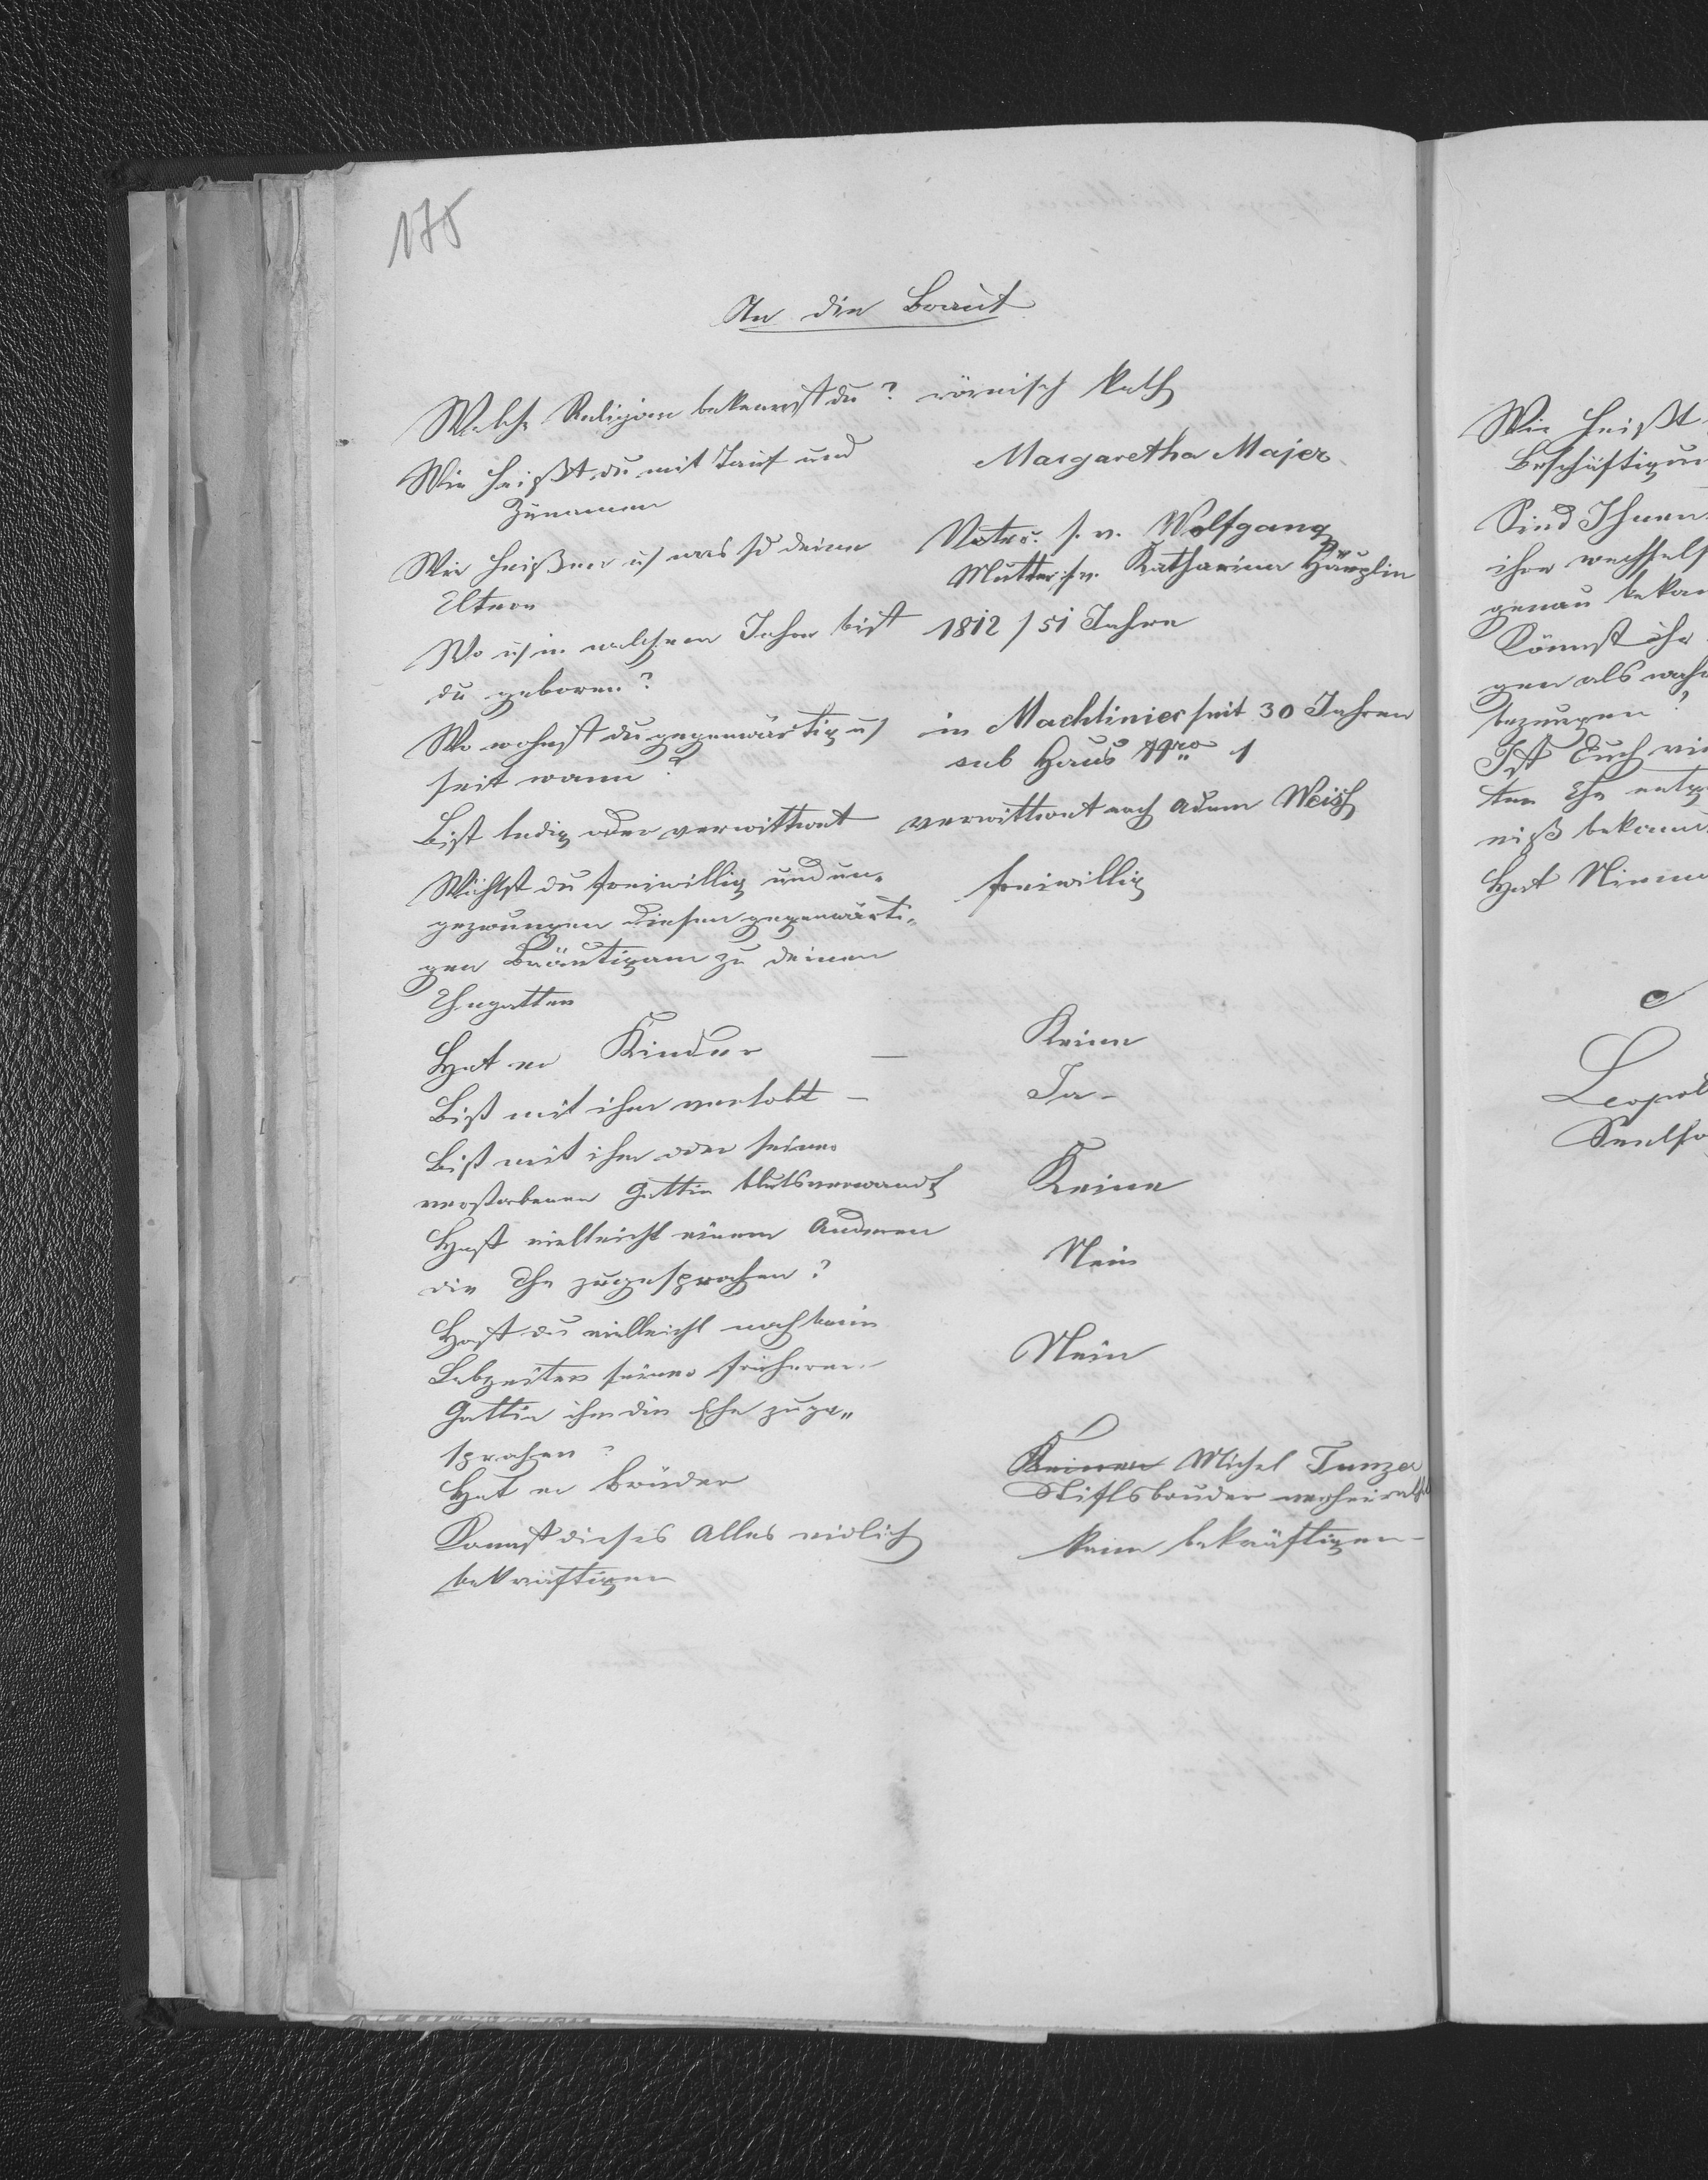 178
An die Braut
Welche Religion bekennst du? römisch kath
Wie heißt du mit Tauf und
Zunamen
Margaretha Majer
Wie heißen u was sd deine
Eltern
Vater: s. v. Wolfgang
Mutter: s. v. Katharina Häuplin
Wo u in welchem Jahre bist
du geboren?
1812 / 51 Jahre
Wo wohnst du gegenwärtig u
seit wann?
in Machliniec seit 30 Jahren
sub Haus Nro 1
Bist ledig oder verwittwet
verwittwet nach Adam Weisz
Wählst du freiwillig und un-
gezwungen diesen gegenwärti-
gen Bräutigam zu deinem
Ehegatten
freiwillig
Hat er Kinder — Keine
Bist mit ihm verlobt — Ja -
Bist mit ihm oder seiner
verstorbenen Gattin blutsverwandt
Keine
Hast vielleicht einem Anderen
die Ehe zugesprochen?
Nein
Hast du vielleicht noch beim
Lebzeiten seiner früheren
Gattin ihm die Ehe zuge-
sprochen?
Nein
Hat er Brüder
Keinen Michel Tanzer
Stifsbruder verheirathet
Kannst dieses Alles eidlich
bekräftigen
kann bekräftigen -
Wie heißt
Beschäftigun
Sind Ihnen
ihre wechsels
genau bekan
Könnst ihr
gen als wahr
bezeugen?
Ist Euch vie
ten Ehe entg
niß bekann
Hat Niema
Leopol
Seelso